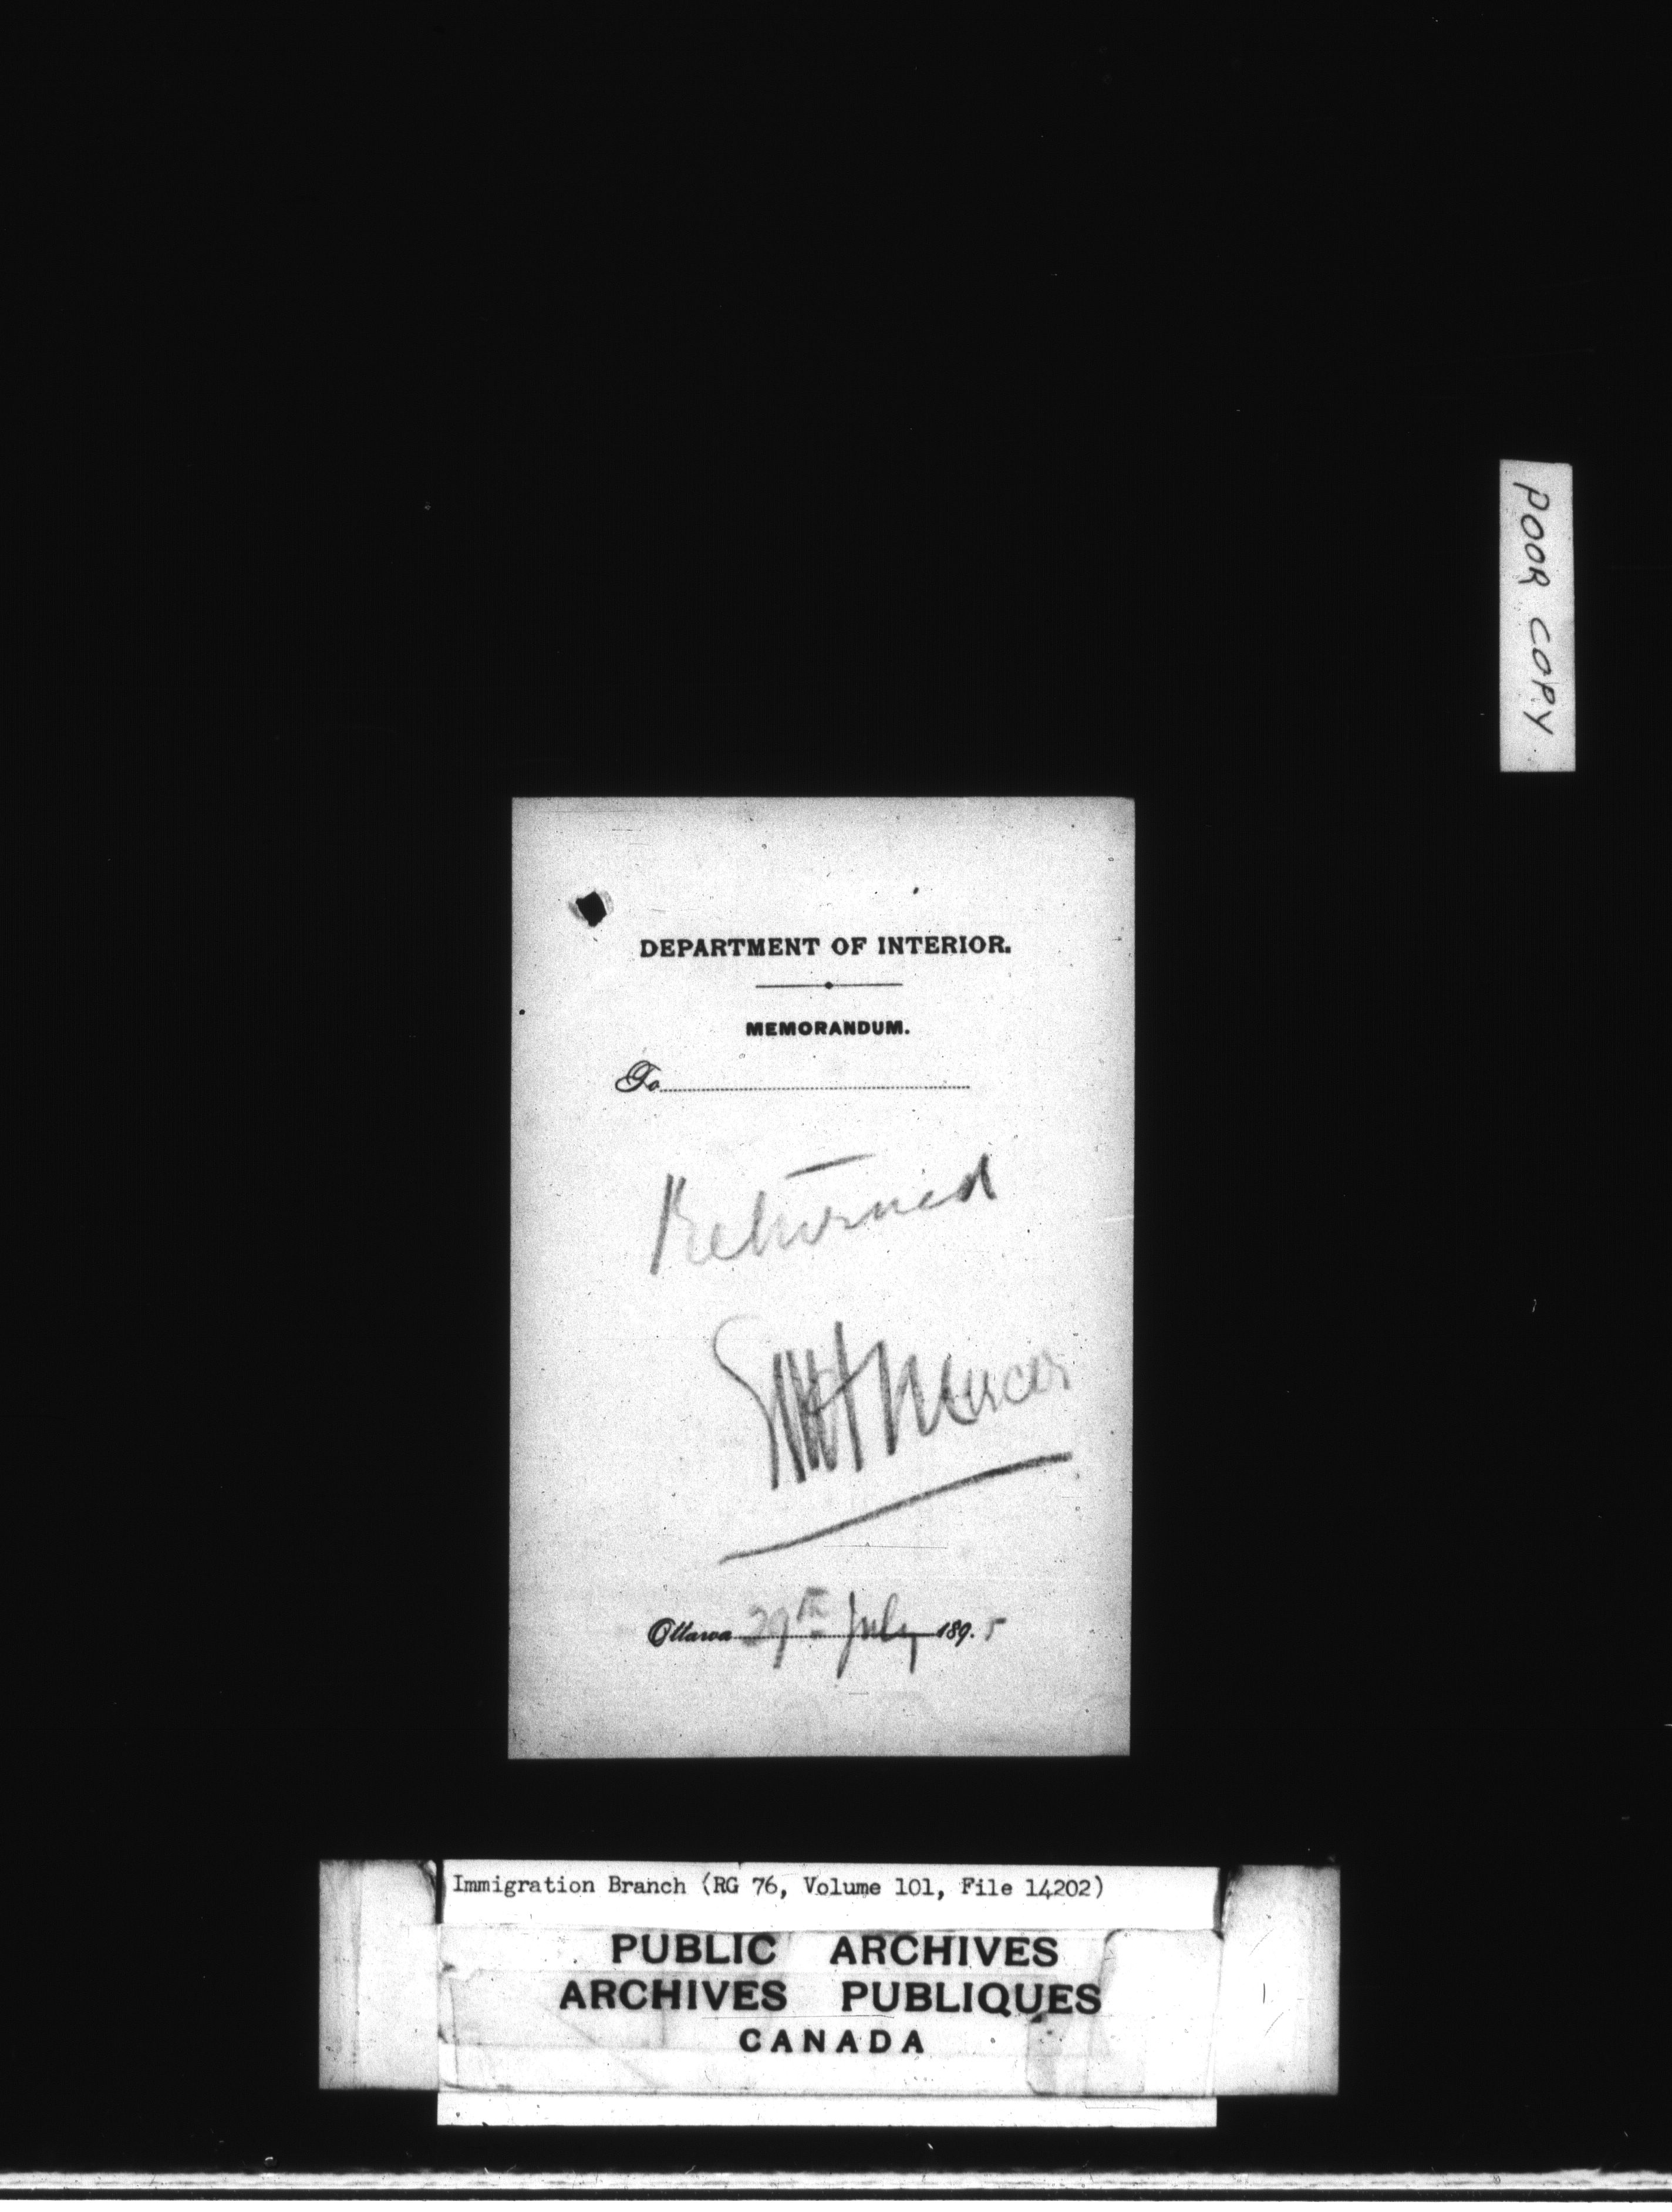 POOR COPY
DEPARTMENT OF INTERIOR.
MEMORANDUM.
To
Returned
Ottawa 29th July 189.5
Immigration Branch (RG 76, Volume 101, File 14202)
PUBLIC ARCHIVES
ARCHIVES PUBLIQUES
CANADA